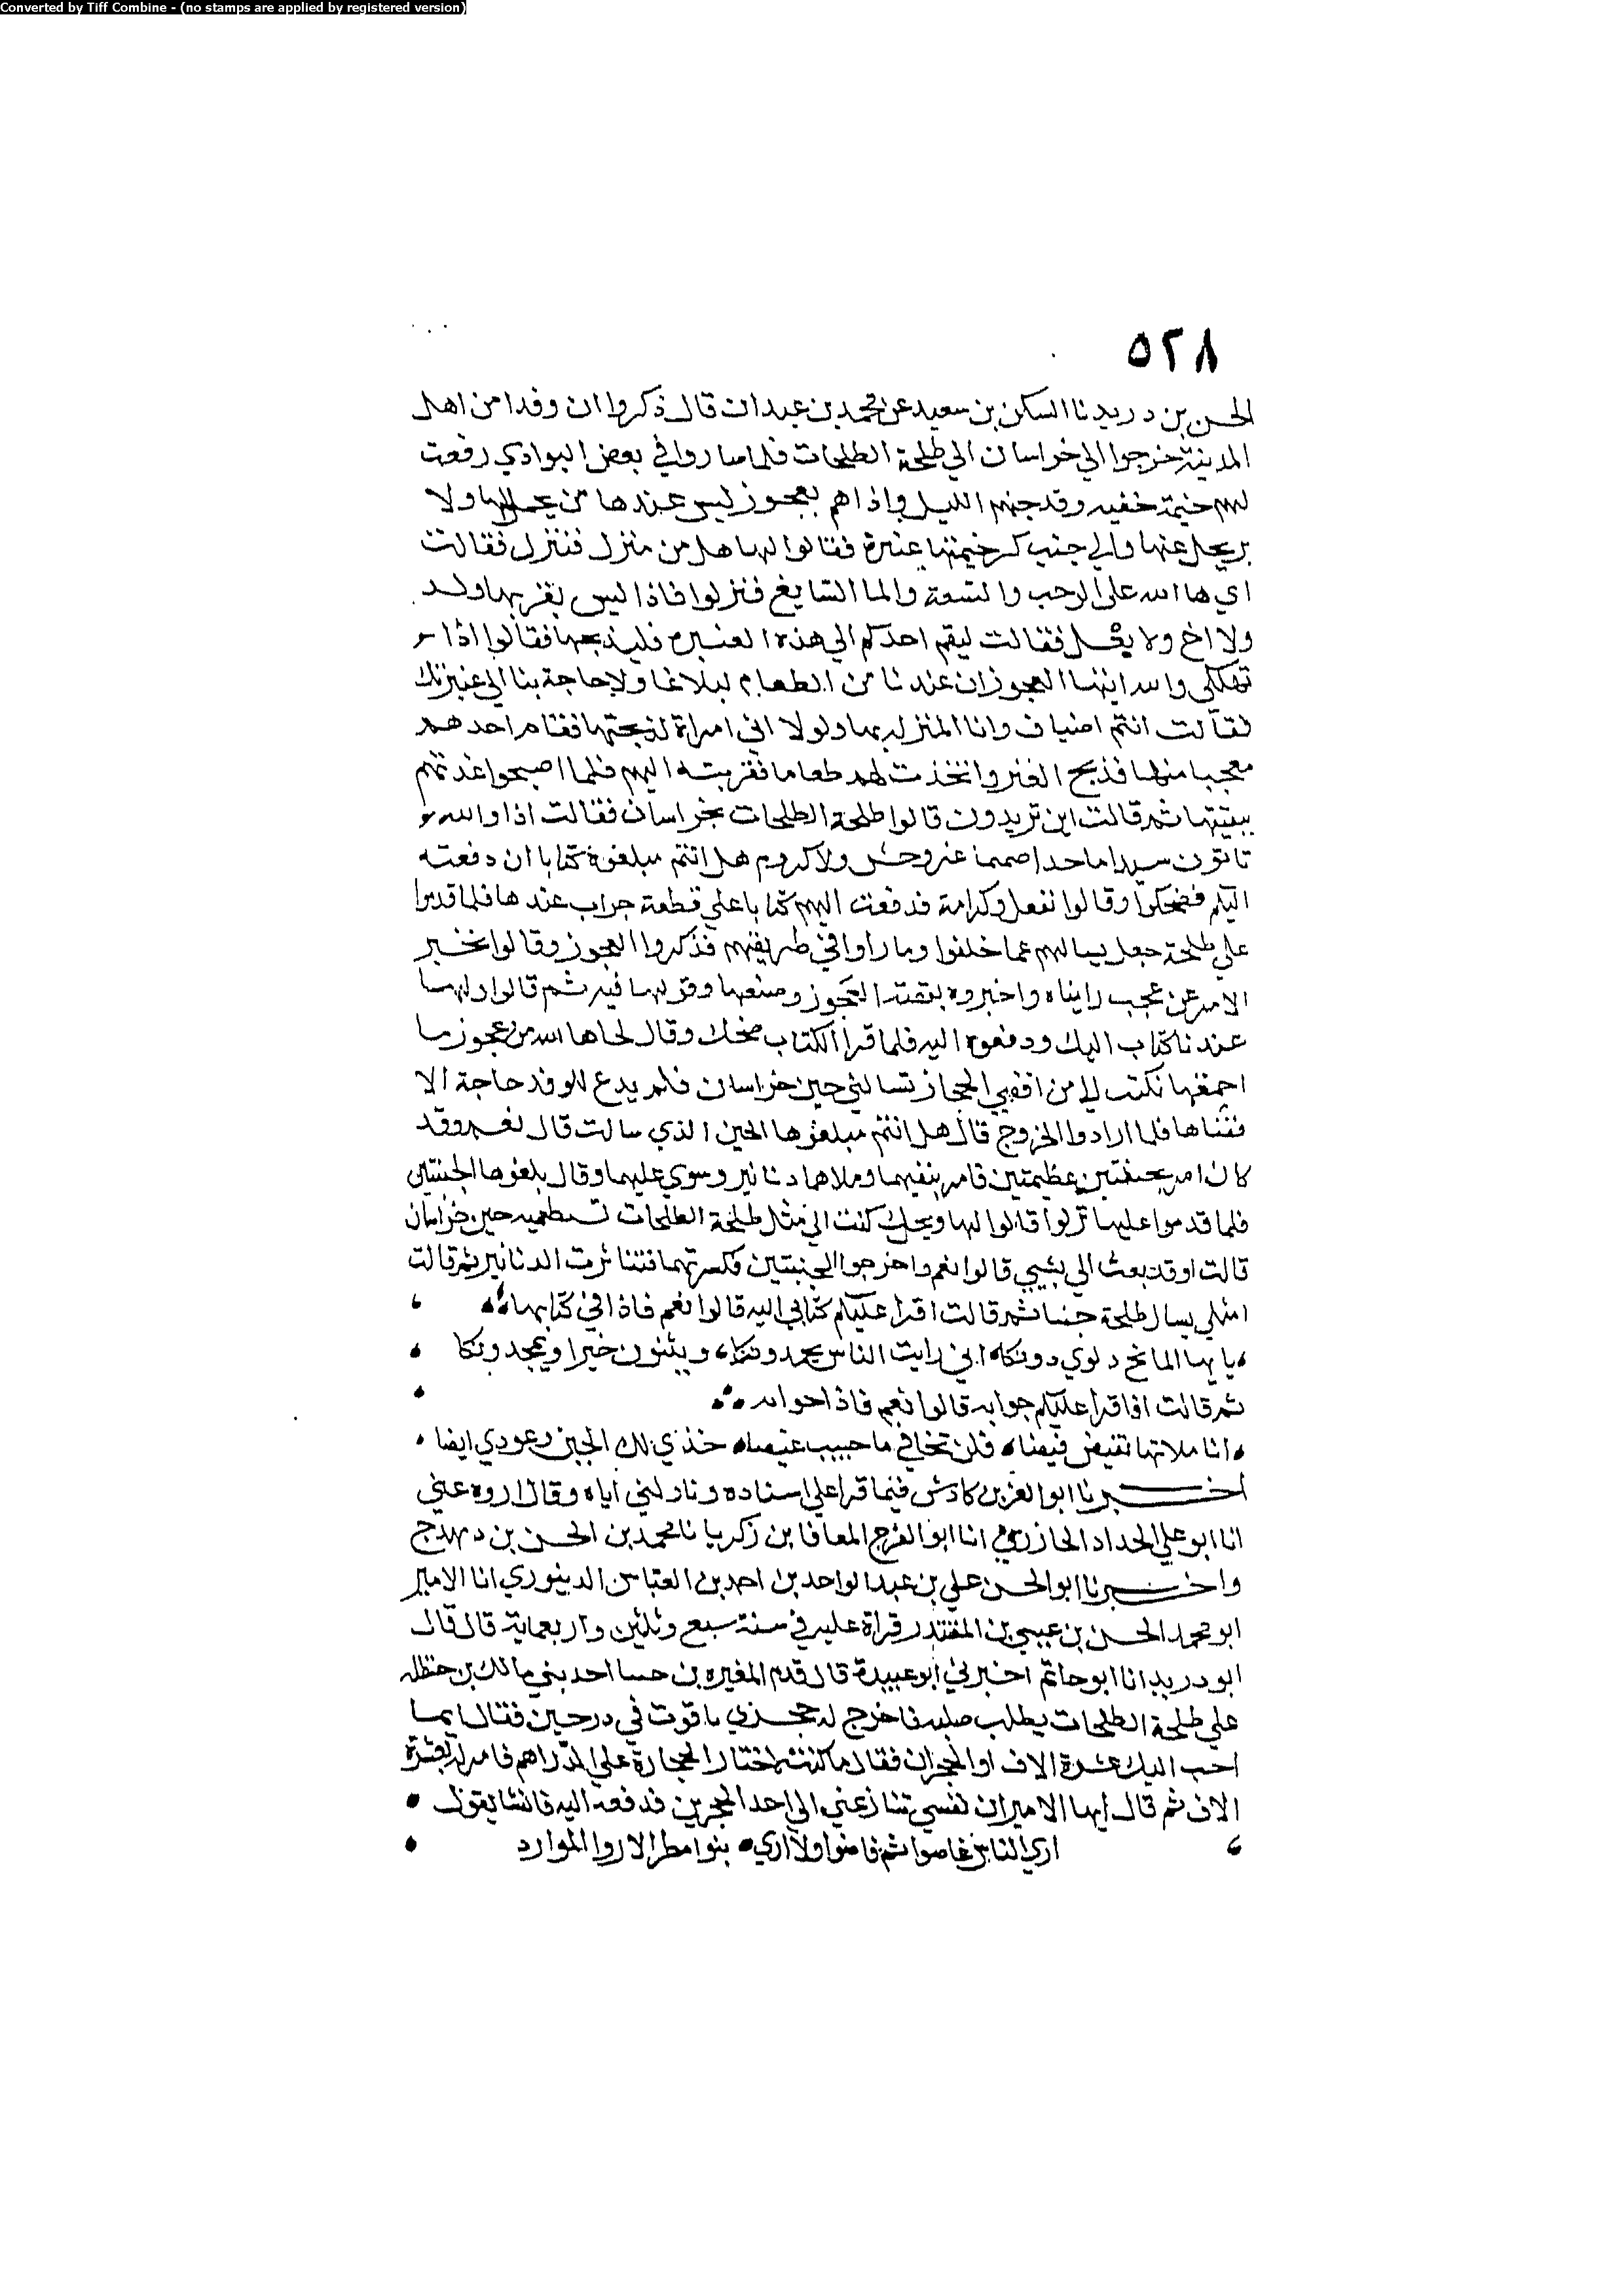 Converted by Tiff Combine - (no stamps are applied by registered version)
٥٢٨
الحسن بن دريد نا السكن بن سعيد عن محمد بن عبدان قال ذكروا ان وفدا من اهل
المدينة خرجوا الي خراسان الي طلحة الطلحات فلما صاروا في بعض البوادي رفعت
لهم خيمة خفيه وقد جنهم الليل واذا هم بعجوز ليس عندها من يحل لها ولا
يرحل عنها والي جنب كسر خيمتها عنيزة فقالوا لها هل من منزل فننزل فقالت
اي ها الله علي الرحب والسعة والما السايغ فنزلوا فاذا ليس بقربها ولد
ولا اخ ولا بعل فقالت ليقم احدكم الي هذه العنيزه فليذبحها فقالوا اذا
تهلكي والله ايتها العجوز ان عندنا من الطعام لبلاغا ولا حاجة بنا الي عنيزتك
فقالت انتم اضياف وانا المنزل بها ولولا اني امراة لذبحتها فقام احدهم
معجبا منها فذبح العنز واتخذت لهم طعاما فقربته اليهم فلما اصبحوا غدتهم
ببقيتها ثم قالت اين تريدون قالوا طلحة الطلحات بخراسان فقالت اذا والله
تاتون سيدا ماجدا صميما غير وحش ولا كدوم هل انتم مبلغوه كتابا ان دفعته
اليكم فضحكوا وقالوا نفعل وكرامة فدفعت اليهم كتابا علي قطعة جراب عندها فلما قدموا
علي طلحة جعل يسالهم عما خلفوا وما راوا في طريقهم فذكروا العجوز وقالوا نخبر
الامير عن عجب رايناه واخبروه بقصة العجوز وصنعها وقولها فيه ثم قالوا ولها
عندنا كتاب اليك ودفعوه اليه فلما قرا الكتاب ضحك وقال لحاها الله من عجوز ما
احمقها تكتب الي من اقصي الحجاز تسالني جبن خراسان فلم يدع للوفد حاجة الا
قضاها فلما ارادوا الخروج قال هل انتم مبلغوها الجبن الذي سالت قال نعم وقد
كان امر بجبنتين عظيمتين فامر بنقبهما وملاهما دنانير وسوي عليهما وقال بلغوها الجبنتين
فلما قدموا عليها نزلوا قالوا لها ويحك كتبت الي مثل طلحة الطلحات تستطعميه جبن خراسان
قالت اوقد بعث الي بشي قالوا نعم واخرجوا الجبنتين فكسرتهما فتناثرت الدنانير ثم قالت
امثلي يسال طلحة جبنا ثم قالت اقرا عليكم كتابي اليه قالوا نعم فاذا في كتابها
يا ايها الماتح دلوي دونكا اني رايت الناس يحمدونكا ويثنون خيرا ويمجدونكا
ثم قالت افاقرا عليكم جوابه قالوا نعم فاذا جوابه
انا ملاتها تفيض فيضا فلن تخافي ما حييت غيضا خذي لك الجبن وعودي ايضا
اخبرنا ابو العز بن كادش فيما قرا علي اسناده وناولني اياه وقال اروه عني
انا ابو علي الحداد الجازري انا ابو الفرج المعافا بن زكريا نا محمد بن الحسن بن دريد ح
واخبرنا ابو الحسن علي بن عبد الواحد بن احمد بن العباس الدينوري انا الامير
ابو محمد الحسن بن عيسي بن المقتدر قراة عليه في سنة سبع وثلثين واربعماية قال قال
ابو دريد انا ابو حاتم اخبرني ابو عبيدة قال قدم المغيره بن حسا احد بني مالك بن حنظله
علي طلحة الطلحات يطلب صلته فاخرج له حجري ياقوت في درجين فقال ايما
احب اليك عشرة الاف او الحجران فقال ما كنت لاختار الحجارة علي الدراهم فامر له بعشرة
الاف ثم قال ايها الامير ان نفسي تنازعني الي احد الحجرين فدفعه اليه فانشا يقول
اري الناس غاصوا ثم غاضوا ولا اري بنوا مطر الا روا الموارد